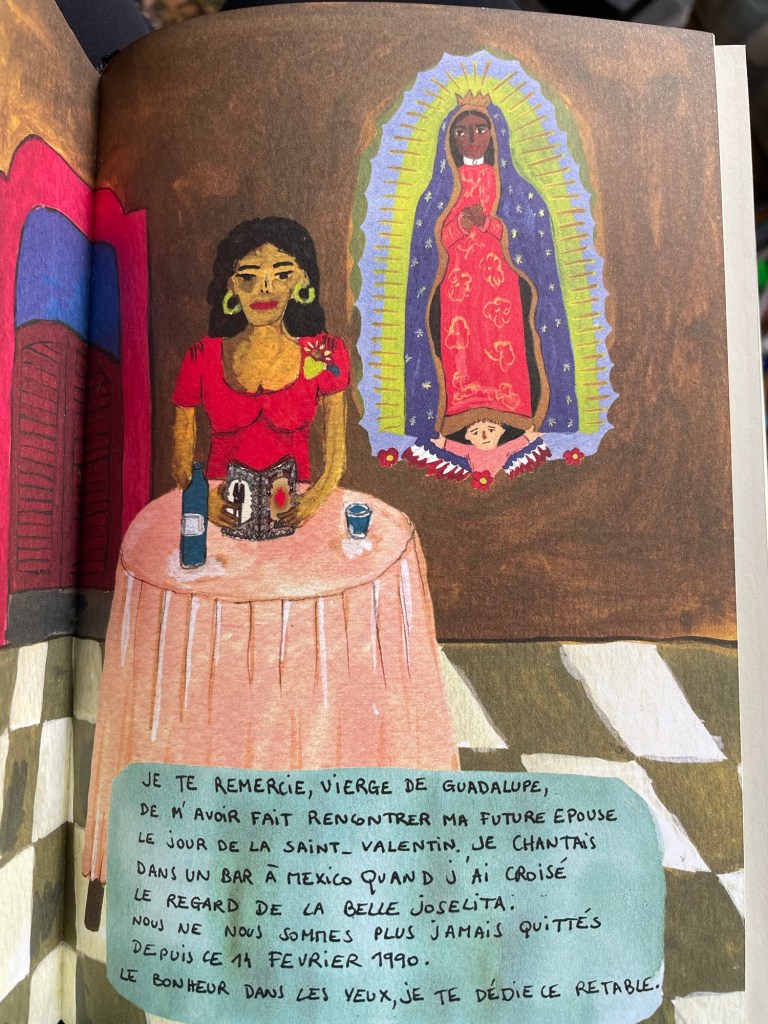 JE TE REMERCIE, VIERGE DE GUADALUPE,
DE M'AVOIR FAIT RENCONTRER MA FUTURE EPOUSE
LE JOUR DE LA SAINT_VALENTIN. JE CHANTAIS
DANS UN BAR À MEXICO QUAND J'AI CROISÉ
LE REGARD DE LA BELLE JOSELITA.
NOUS NE NOUS SOMMES PLUS JAMAIS QUITTÉS
DEPUIS CE 14 FEVRIER 1990.
LE BONHEUR DANS LES YEUX, JE TE DÉDIE CE RETABLE.